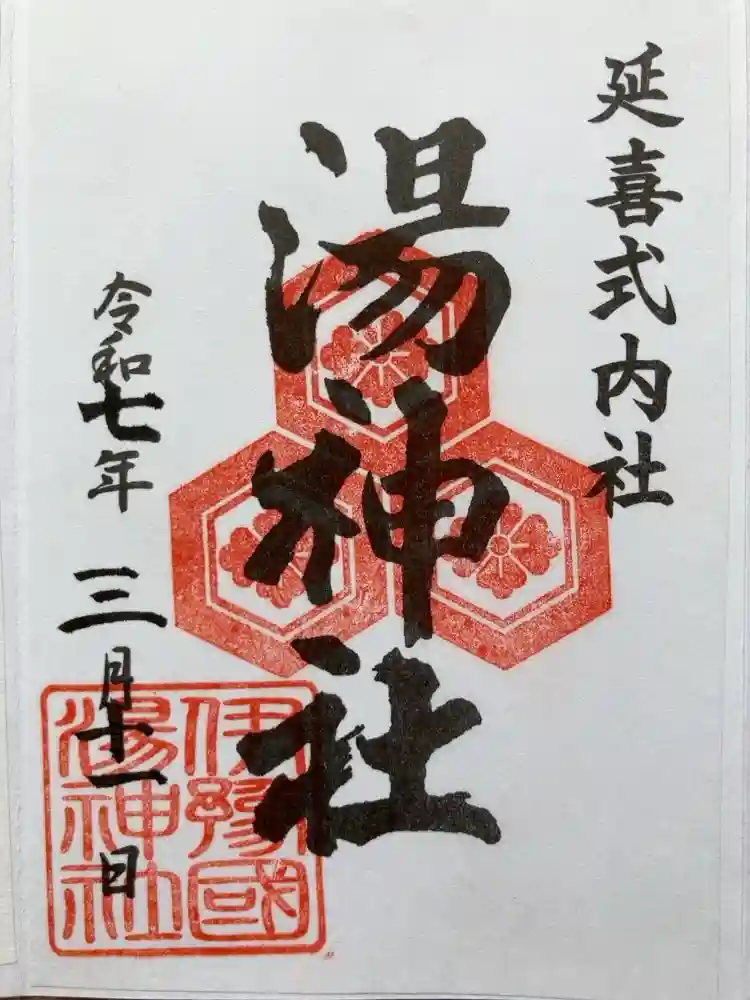 延喜式内社
湯神社
令和七年 三月十一日
伊豫國
湯神社